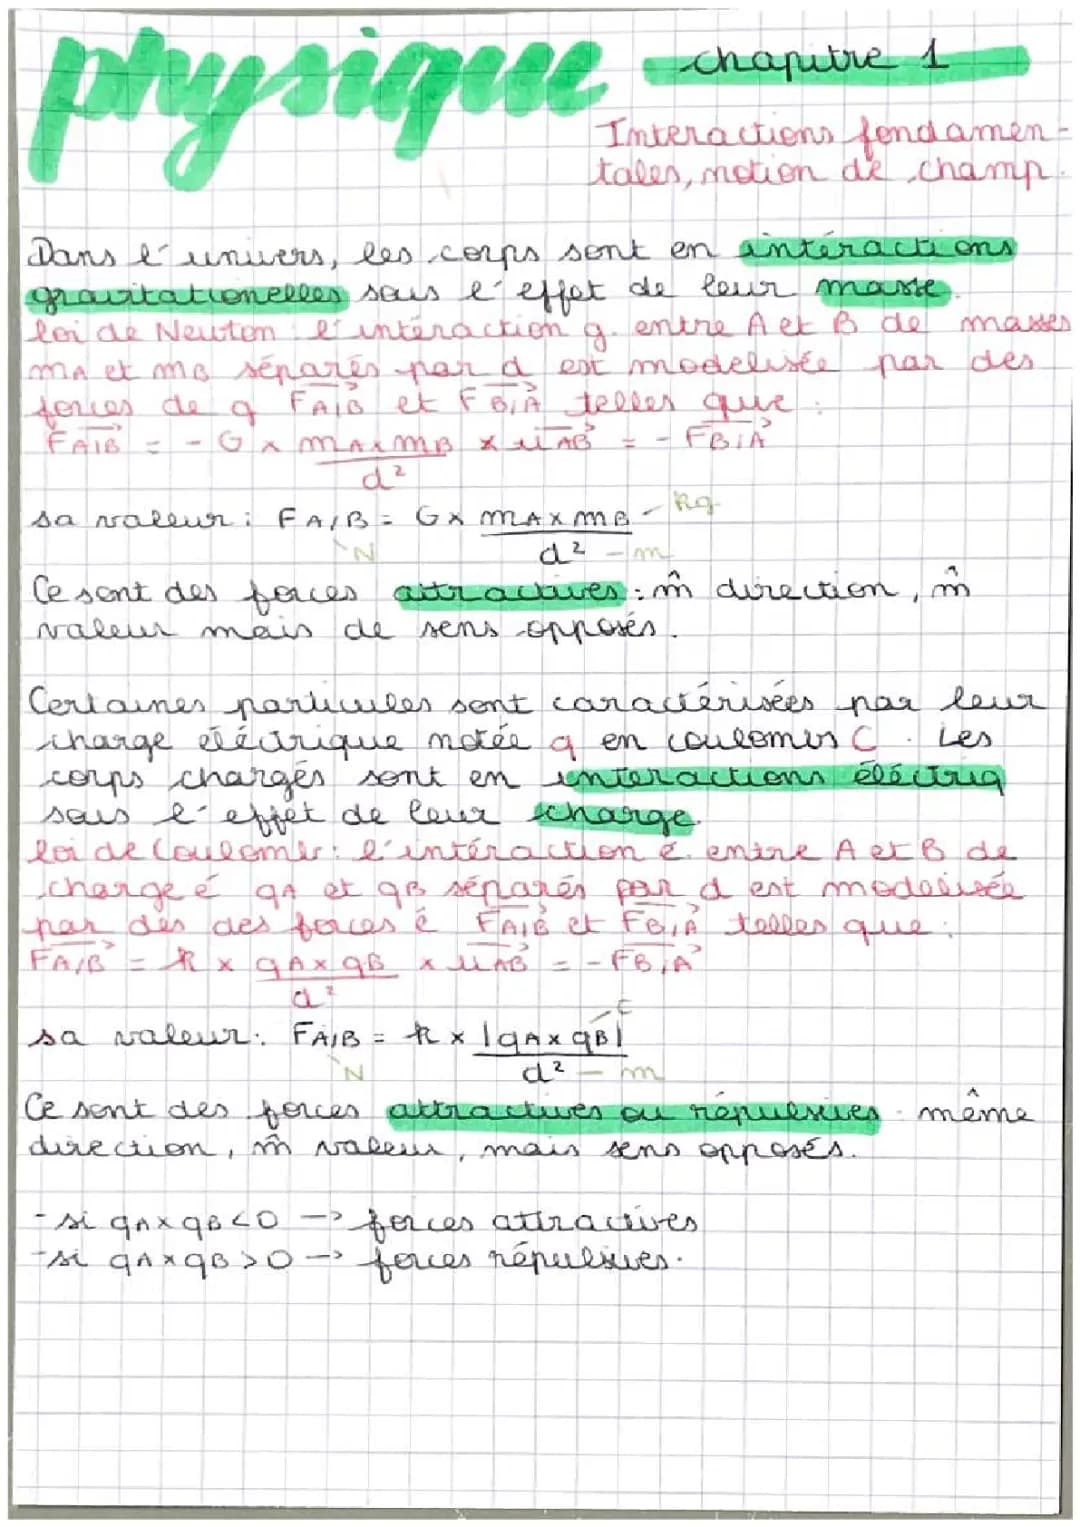 physique chapitre 1
Interactions fondamen-
tales, notion de champ.
Dans l'univers, les corps sont en intéractions
gravitationelles sous l'effet de leur masse.
loi de Newton : l'intéraction g. entre A et B de masses
mA et mB séparés par d est modelisée par des
forces de g FA/B et FB/A telles que :
FA/B = - G x mA x mB x uAB = - FB/A
d²
sa valeur : FA/B = G x mA x mB - kg
N d² - m
Ce sont des forces attractives : m̂ direction, m̂
valeur mais de sens opposés.
Certaines particules sont caractérisées par leur
charge éléctrique notée q en coulombs C. Les
corps chargés sont en interactions éléctriq
sous l'effet de leur charge.
loi de Coulomb : l'intéraction é. entre A et B de
charge é qA et qB séparés par d est modelisée
par des des forces é FA/B et FB/A telles que :
FA/B = k x qA x qB x uAB = - FB/A
d²
sa valeur : FA/B = k x |qA x qB| C
N d² - m
Ce sont des forces attractives ou répulsives. même
direction, m̂ valeur, mais sens opposés.
- si qA x qB < 0 -> forces attractives
- si qA x qB > 0 -> forces répulsives.